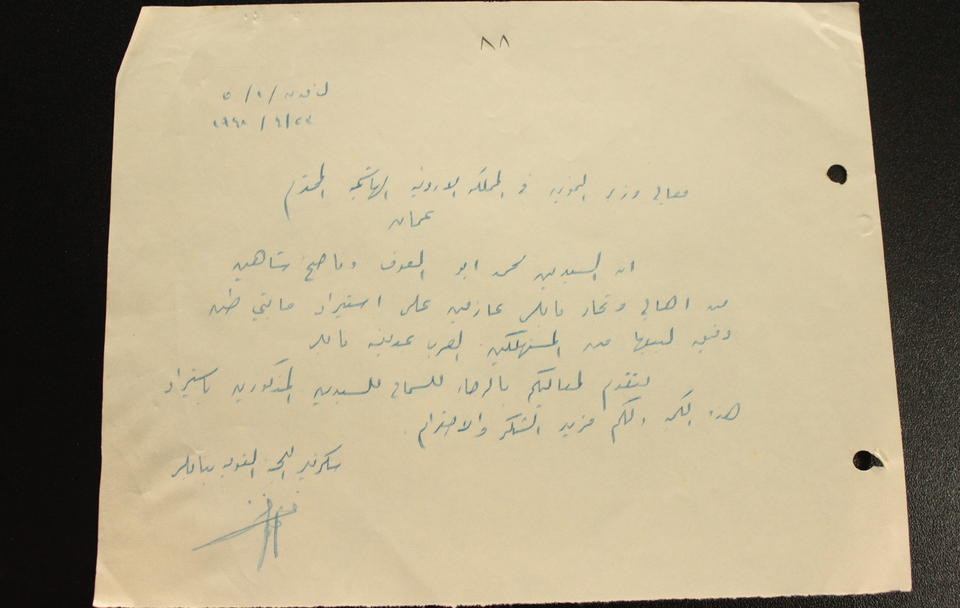 ٨٨
٥ /١ /
معالي وزير التموين في المملكة الاردنية الهاشمية المحترم
عمان
ان السيدين محمد ابو العوف وناصح شاهين
من اهالي وتجار نابلس عازمين على استيراد مايتي طن
دقيق لبيعها من المستهلكين العرب بمدينة نابلس
نتقدم لمعاليكم بالرجاء للسماح للسيدين المذكورين باستيراد
هذه الكمية ولكم مزيد الشكر والاحترام
سكرتير اللجنة القومية بنابلس